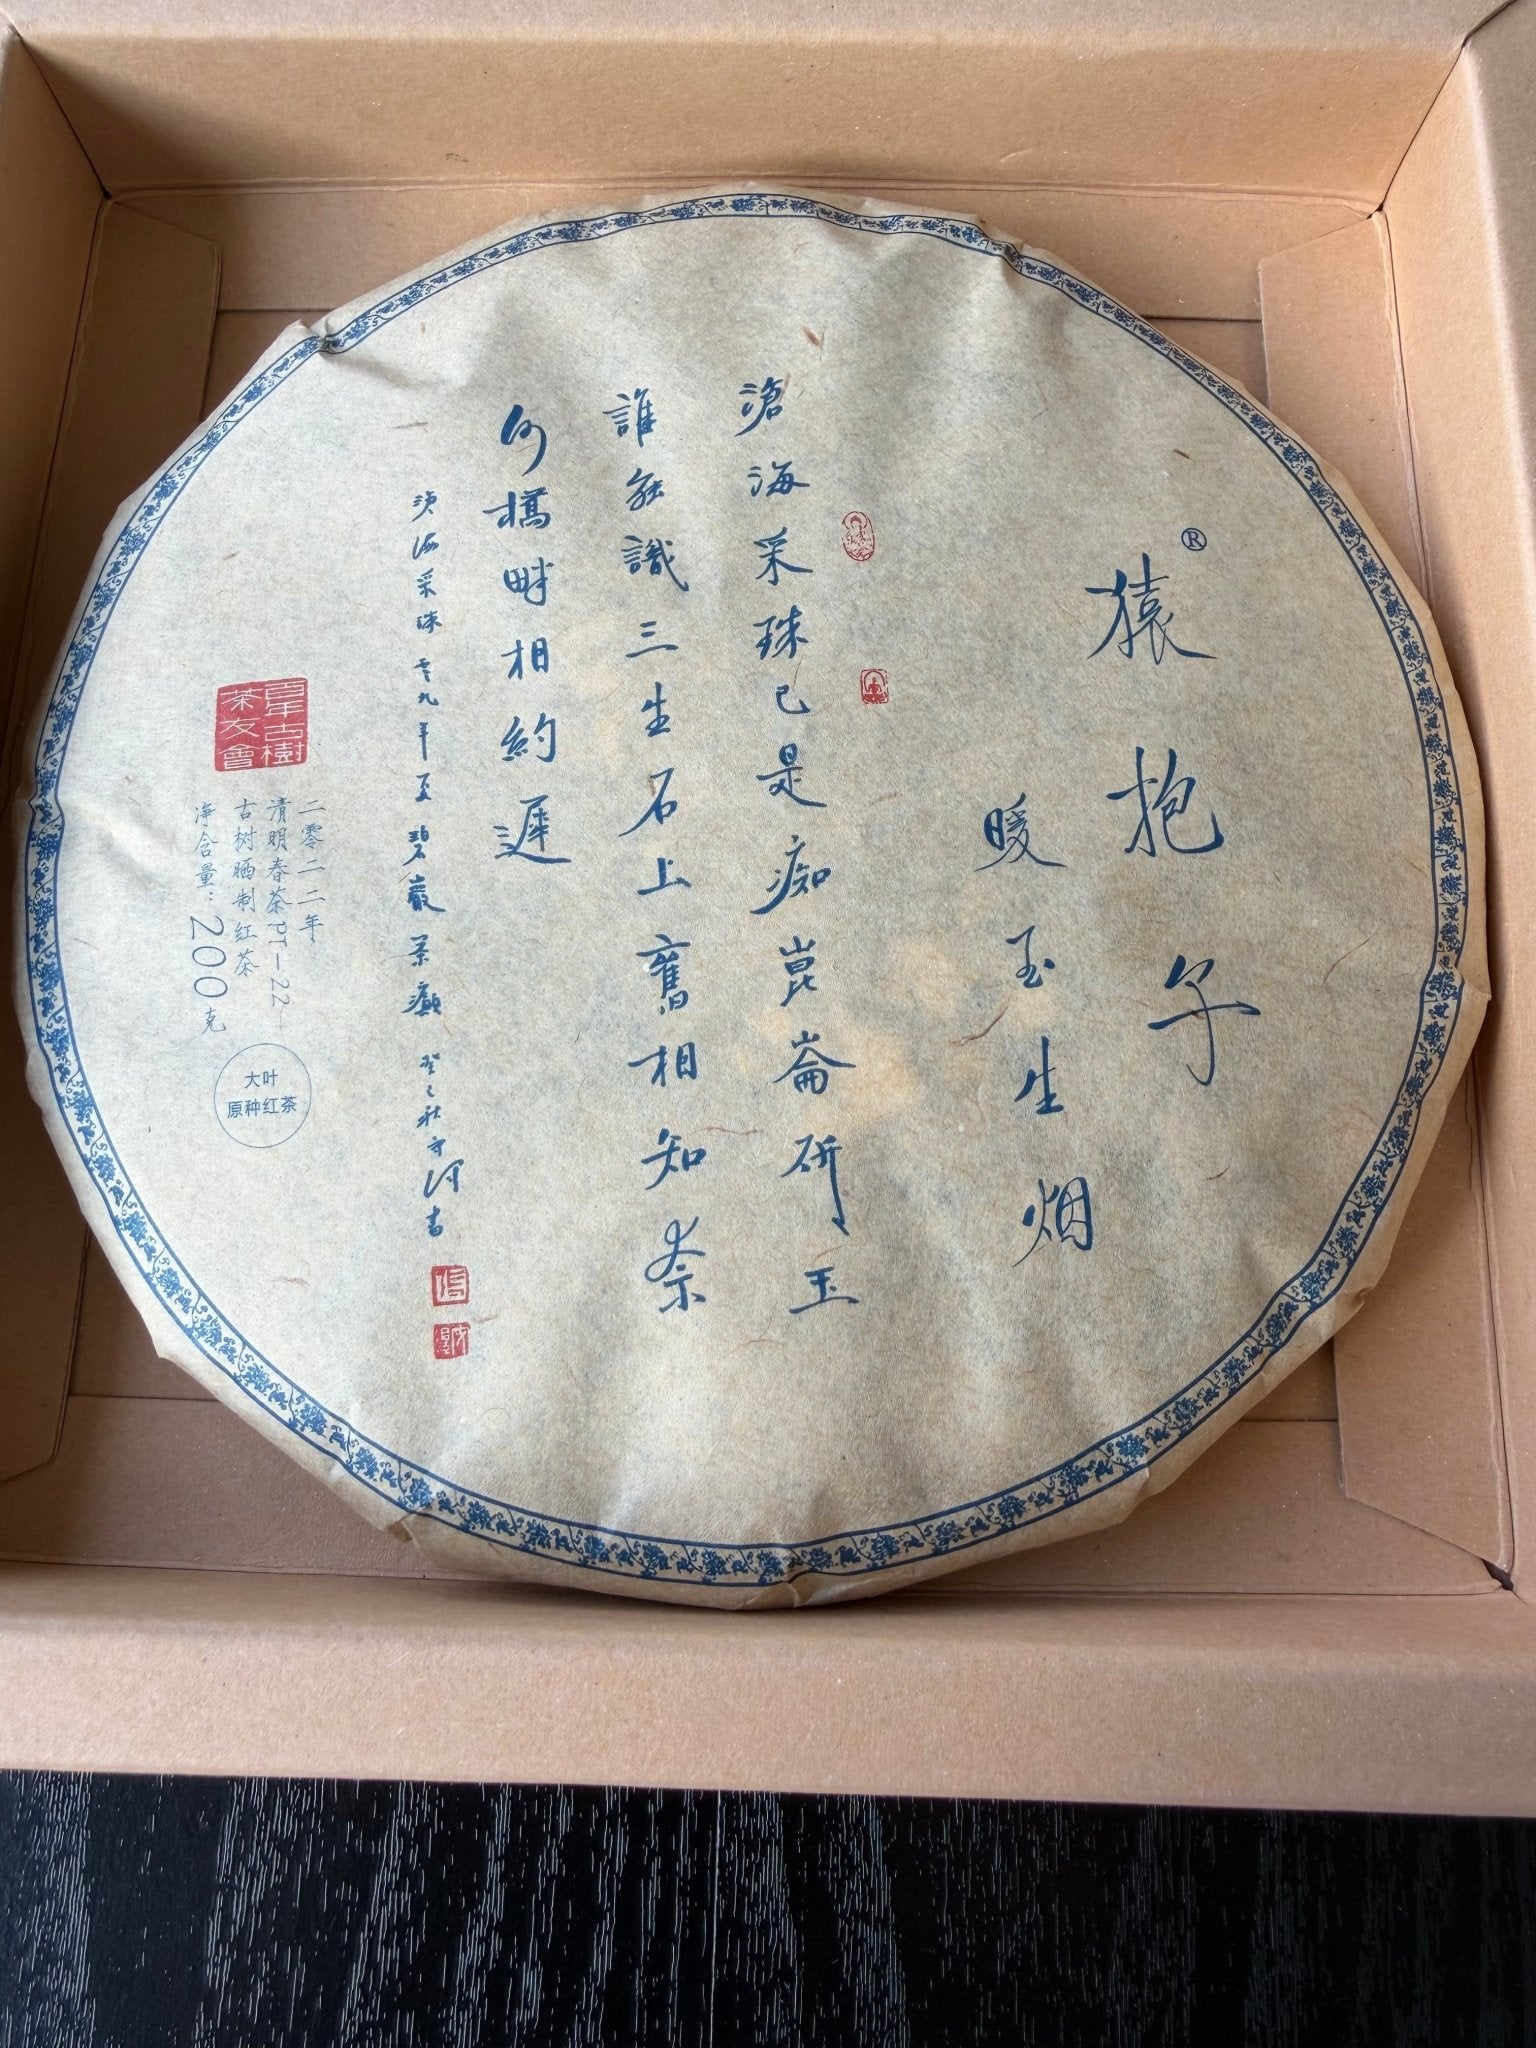 猿抱子®
暖玉生烟
滄海采珠已是痴崑崙斫玉
誰能識三生石上舊相知奈
何橋畔相約遲
滄海采珠 零九年夏 碧巖茶癲
百年古樹
茶友會
二零二二年
清明春茶PT-22
古树晒制红茶
净含量:200克
大叶
原种红茶